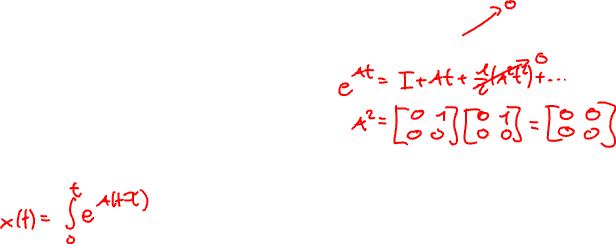 0
e^{At} = I + At + \frac{1}{2}(A^2t^2) + ...
0
A^2 = \begin{bmatrix} 0 & 1 \\ 0 & 0 \end{bmatrix} \begin{bmatrix} 0 & 1 \\ 0 & 0 \end{bmatrix} = \begin{bmatrix} 0 & 0 \\ 0 & 0 \end{bmatrix}
x(t) = \int_0^t e^{A(t-\tau)}